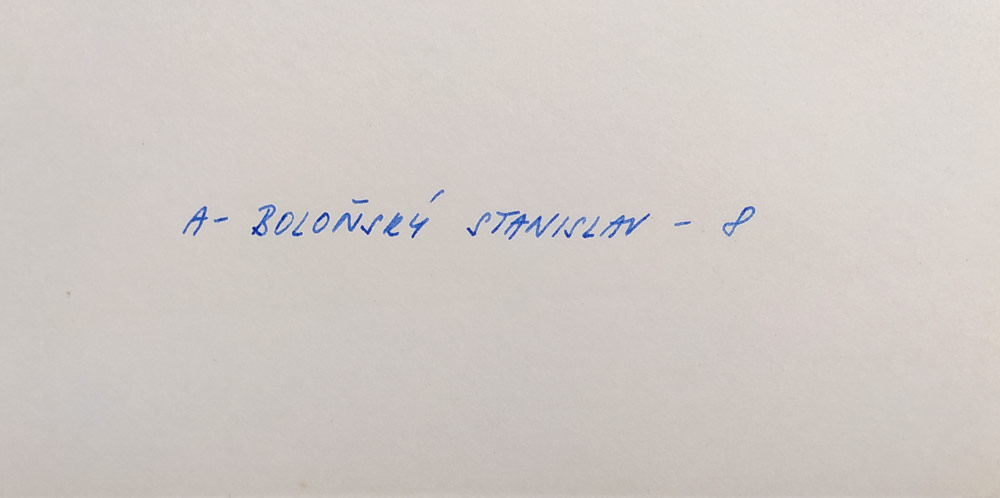 A- BOLOŇSKÝ STANISLAV - 8